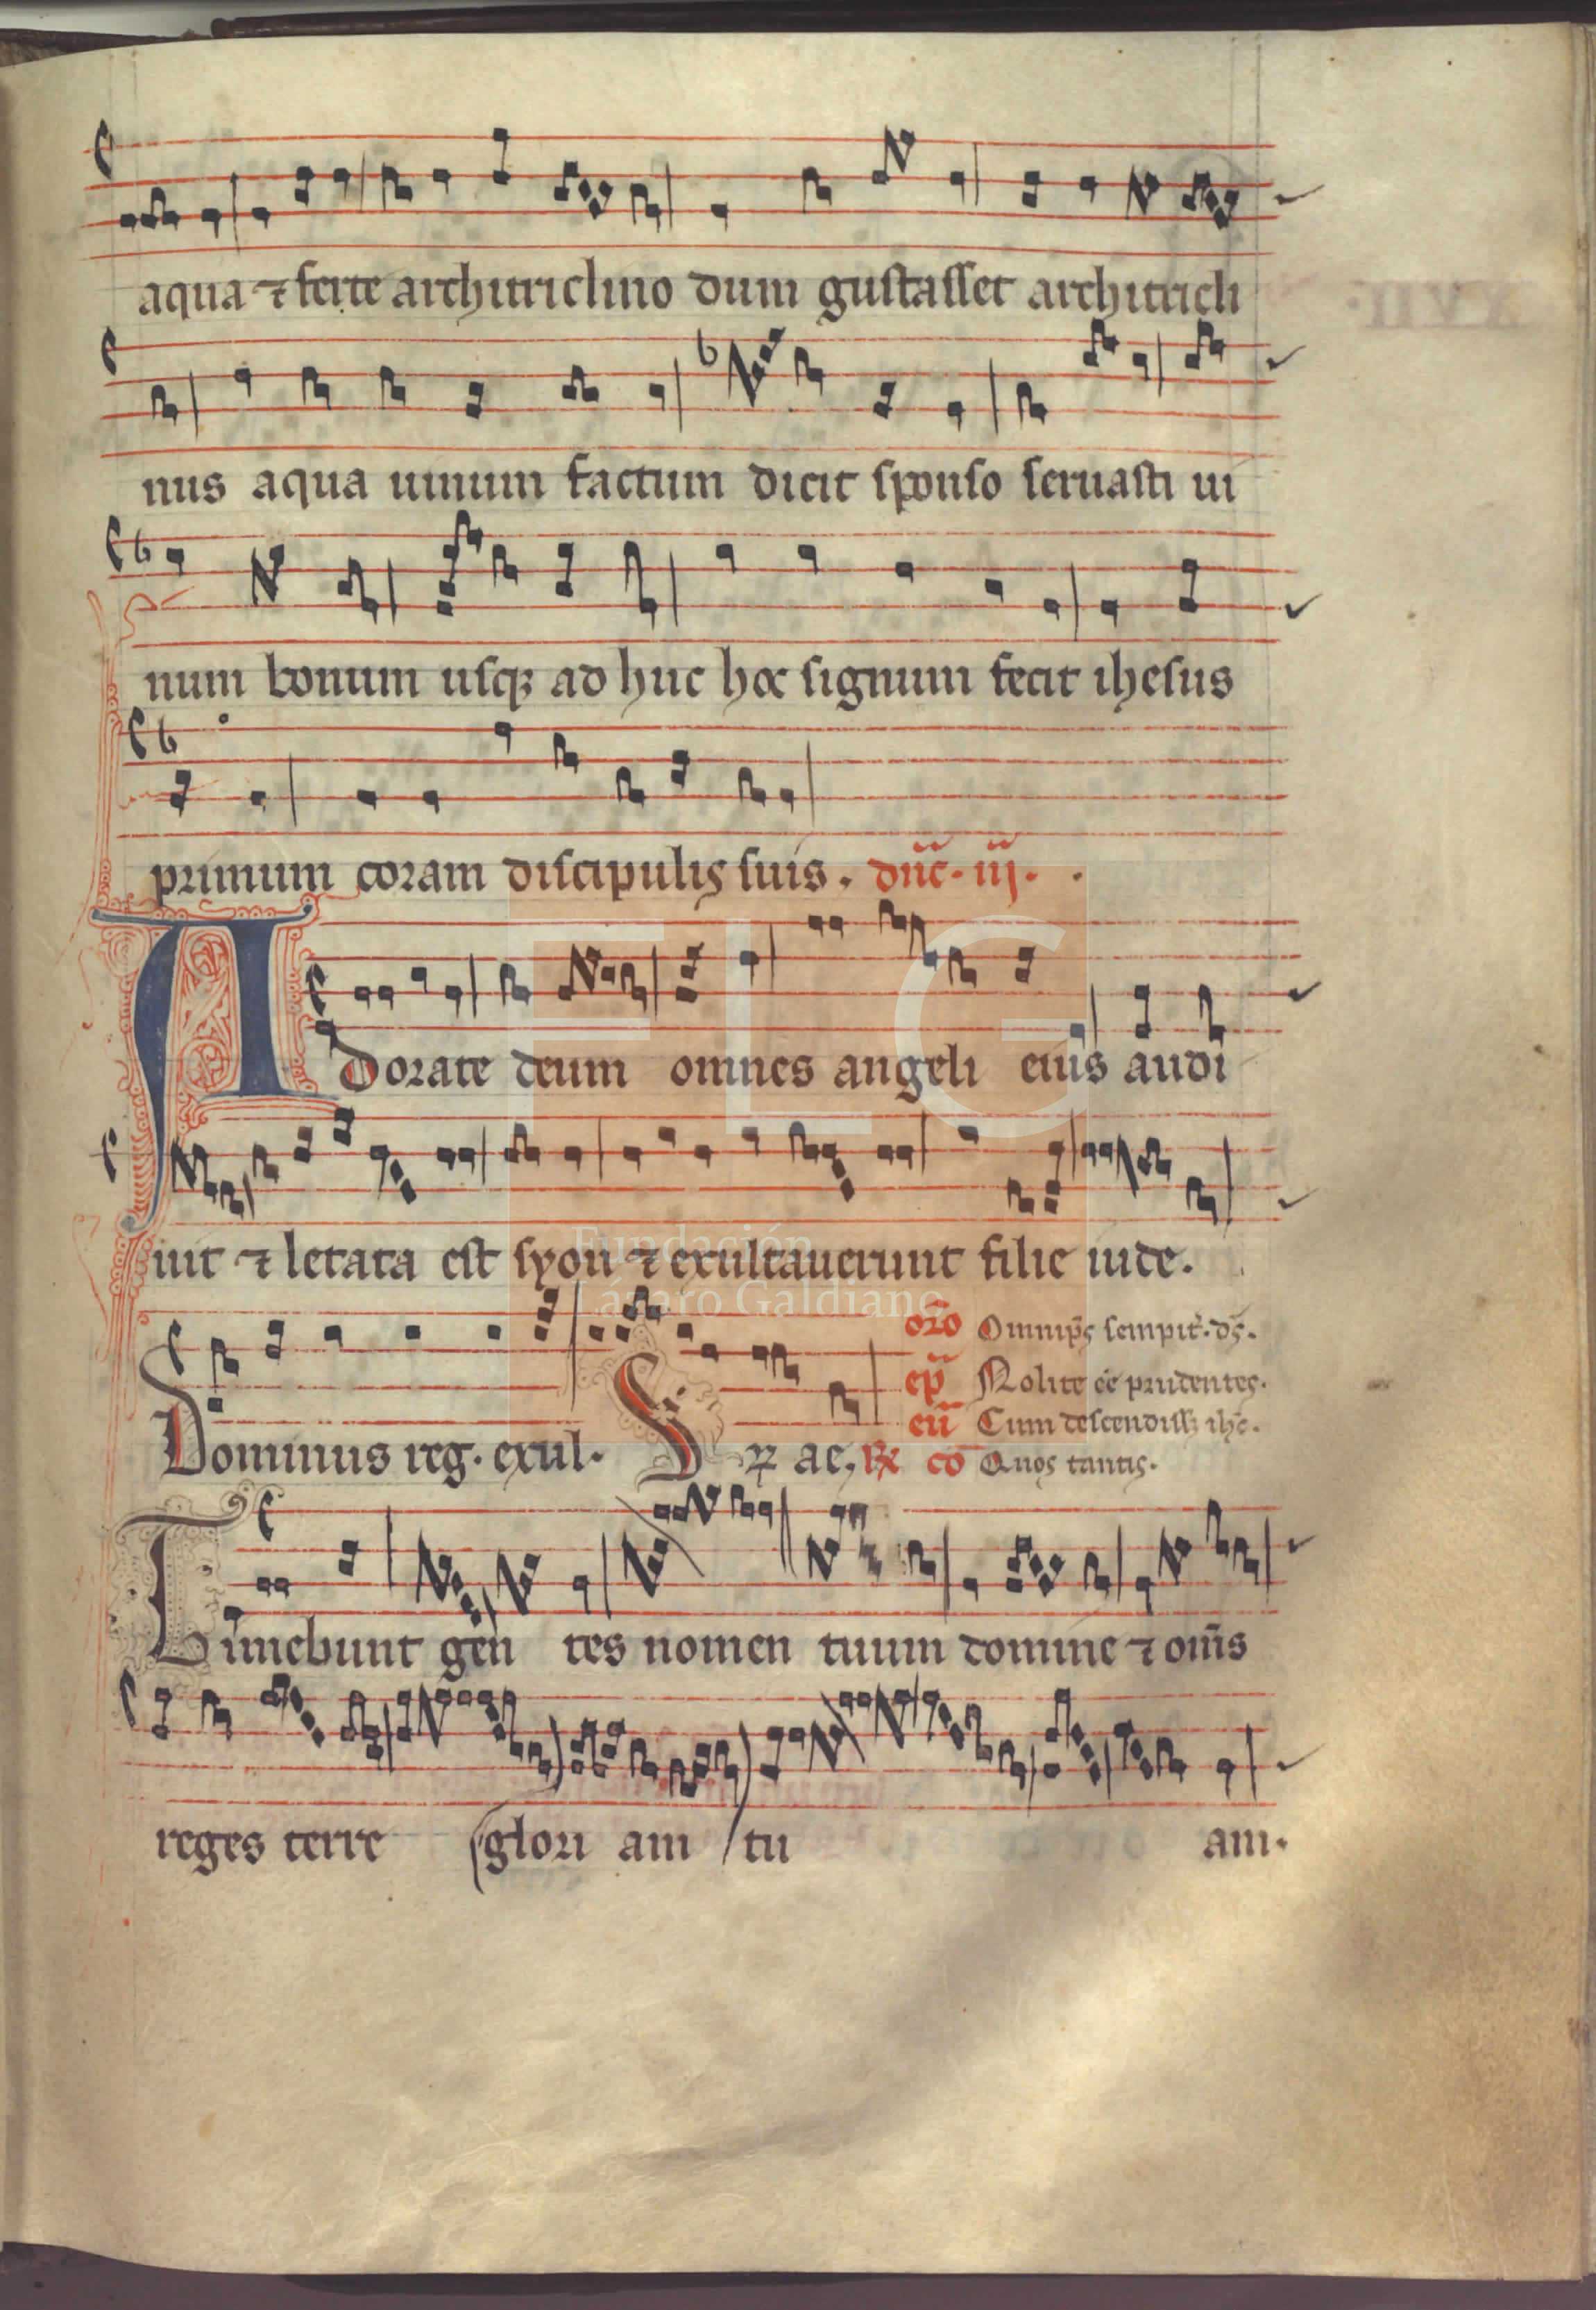 aqua ⁊ ferte architriclino dum gustasset architricli
nus aqua uinum factum dicit sponso seruasti ui
num bonum usqꝫ ad huc hoc signum fecit ihesus
primum coram discipulis suis. dñc. iij.
Adorate deum omnes angeli eius audi
uit ⁊ letata est syon ⁊ exultauerunt filie iude.
oro Omnip̄s sempit̄. ds̄.
ep̄ Nolite ēē prudentes.
eū Cum descendissꝫ ihc̄.
Dominus reg. exul. S ꝝ ae. ℞ cō Quos tantis.
Timebunt gen tes nomen tuum domine ⁊ om̄s
reges terre glori am tu am.
XVII.
FLG
Fundación
Lázaro Galdiano